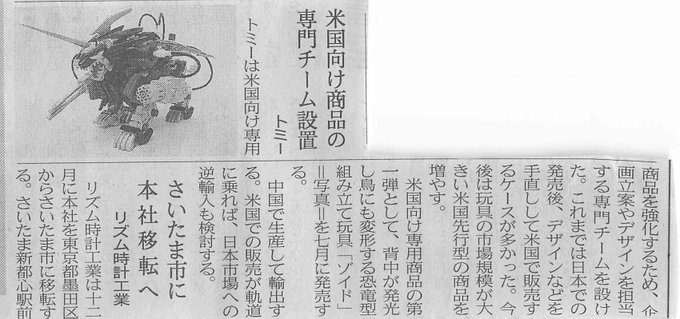 米国向け商品の
専門チーム設置
トミー
トミーは米国向け専用
商品を強化するため、企
画立案やデザインを担当
する専門チームを設け
た。これまでは日本での
発売後、デザインなどを
手直しして米国で販売す
るケースが多かった。今
後は玩具の市場規模が大
きい米国先行型の商品を
増やす。
米国向け専用商品の第
一弾として、背中が発光
し鳥にも変形する恐竜型
組み立て玩具「ゾイド」
＝写真＝を七月に発売す
る。
中国で生産して輸出す
る。米国での販売が軌道
に乗れば、日本市場への
逆輸入も検討する。
さいたま市に
本社移転へ
リズム時計工業
リズム時計工業は十二
月に本社を東京都墨田区
からさいたま市に移転す
る。さいたま新都心駅前